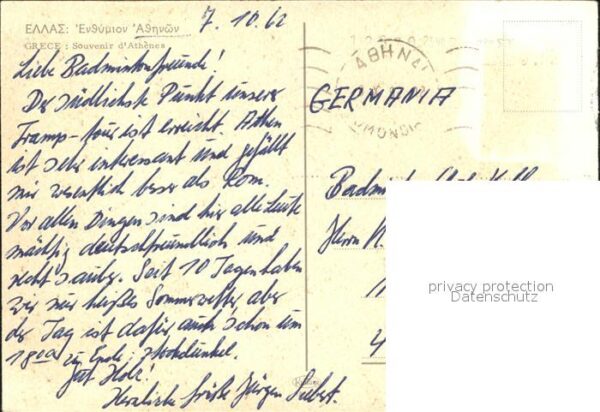 7. 10. 62
ΕΛΛΑΣ: Ἐνθύμιον Ἀθηνῶν
GRECE : Souvenir d'Athènes
Liebe Badmintonfreunde!
Der südlichste Punkt unserer
Tramp-tour ist erreicht. Athen
ist sehr interessant und gefällt
mir wesentlich besser als Rom.
Vor allen Dingen sind hier alle Leute
mächtig deutschfreundlich und
recht sauber. Seit 10 Tagen haben
wir nur heißes Sommerwetter, aber
der Tag ist dafür auch schon um
18.00 zu Ende: stockdunkel.
Gut Holz!
Herzliche Grüße Jürgen
ΑΘΗΝΑΙ
GERMANIA
Herrn
privacy protection
Datenschutz